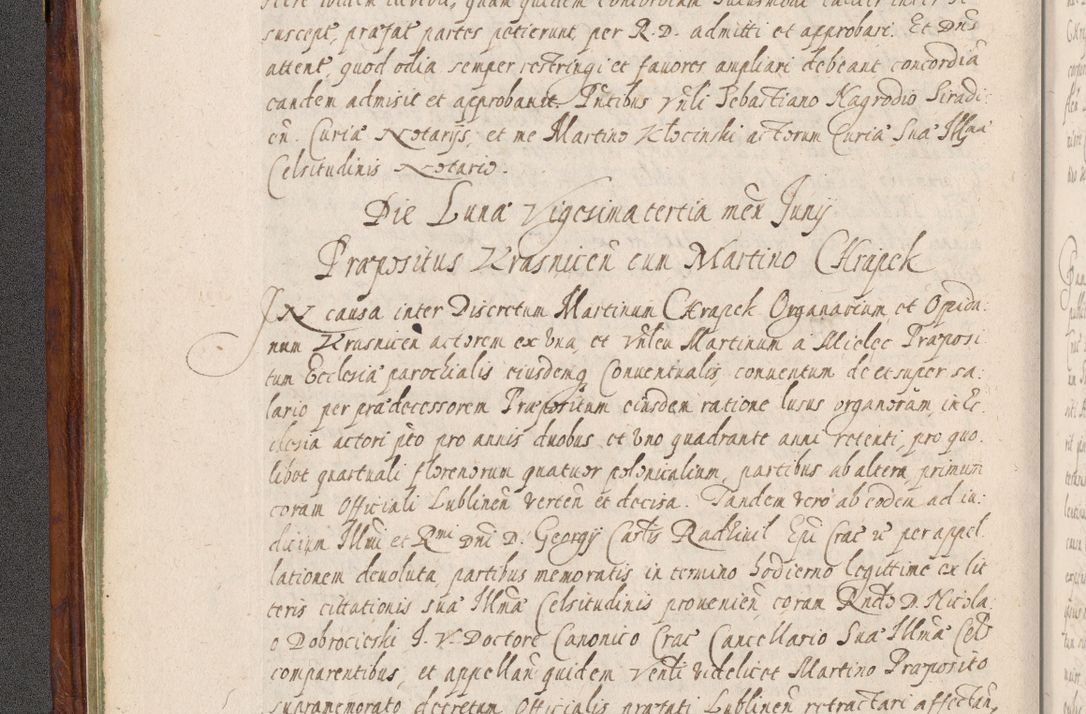 suscept, præfat partes petierunt per R. D. admitti et approbari. Et Dn̄s
attent, quod odia semper restringi et fauores ampliari debeant concordiā
eandem admisit et approbauit. Pn̄tibus Vn̄li Sebastiano Nagrodio Siradi:
cn̄. Curiæ Notarijs, et me Martino Kłocinski actorum Curiæ Suæ Illmæ
Celsitudinis Notario.
Die Lunæ Vigesima tertia men̄ Junij
Præpositus Krasnicen̄ cum Martino Chrapek
IN causa inter Discretum Martinum Chrapek Organarium, et Opida:
num Krasnicen̄ actorem ex Vna, et Vn̄lem Martinum a Mielec Præposi
tum Ecclesiæ parochialis eiusdemq Conuentualis conuentum de et super sa:
lario per prædecessorem Præpositum eiusdem ratione lusus organorum, in Ec
clesia actori pto pro annis duobus et Vno quadrante anni retenti, pro quo:
libet quartuali florenorum quatuor polonicalium, partibus ab altera primum
coram Officiali Lublinen̄ verten̄ et decisa. Tandem vero ab eodem ad iu:
dicium Illmi et Rmi Dn̄i D. Georgij Carlis Radhiuil Epi Crac perappel
lationem deuoluta, partibus memoratis in termino hodierno legittime ex lit
teris cittationis suæ Illmæ Celsitudinis prouenien̄ coram Rndo D. Nicola
o Dobrocieski I. V. Doctore Canonico Crac Cancellario Suæ Illmæ Cels
comparentibus, et appellan̄ quidem Venli videlicet Martino Præposito
supramemorato decretum Officialis præfati Lublinen̄ retractari affectan̄,